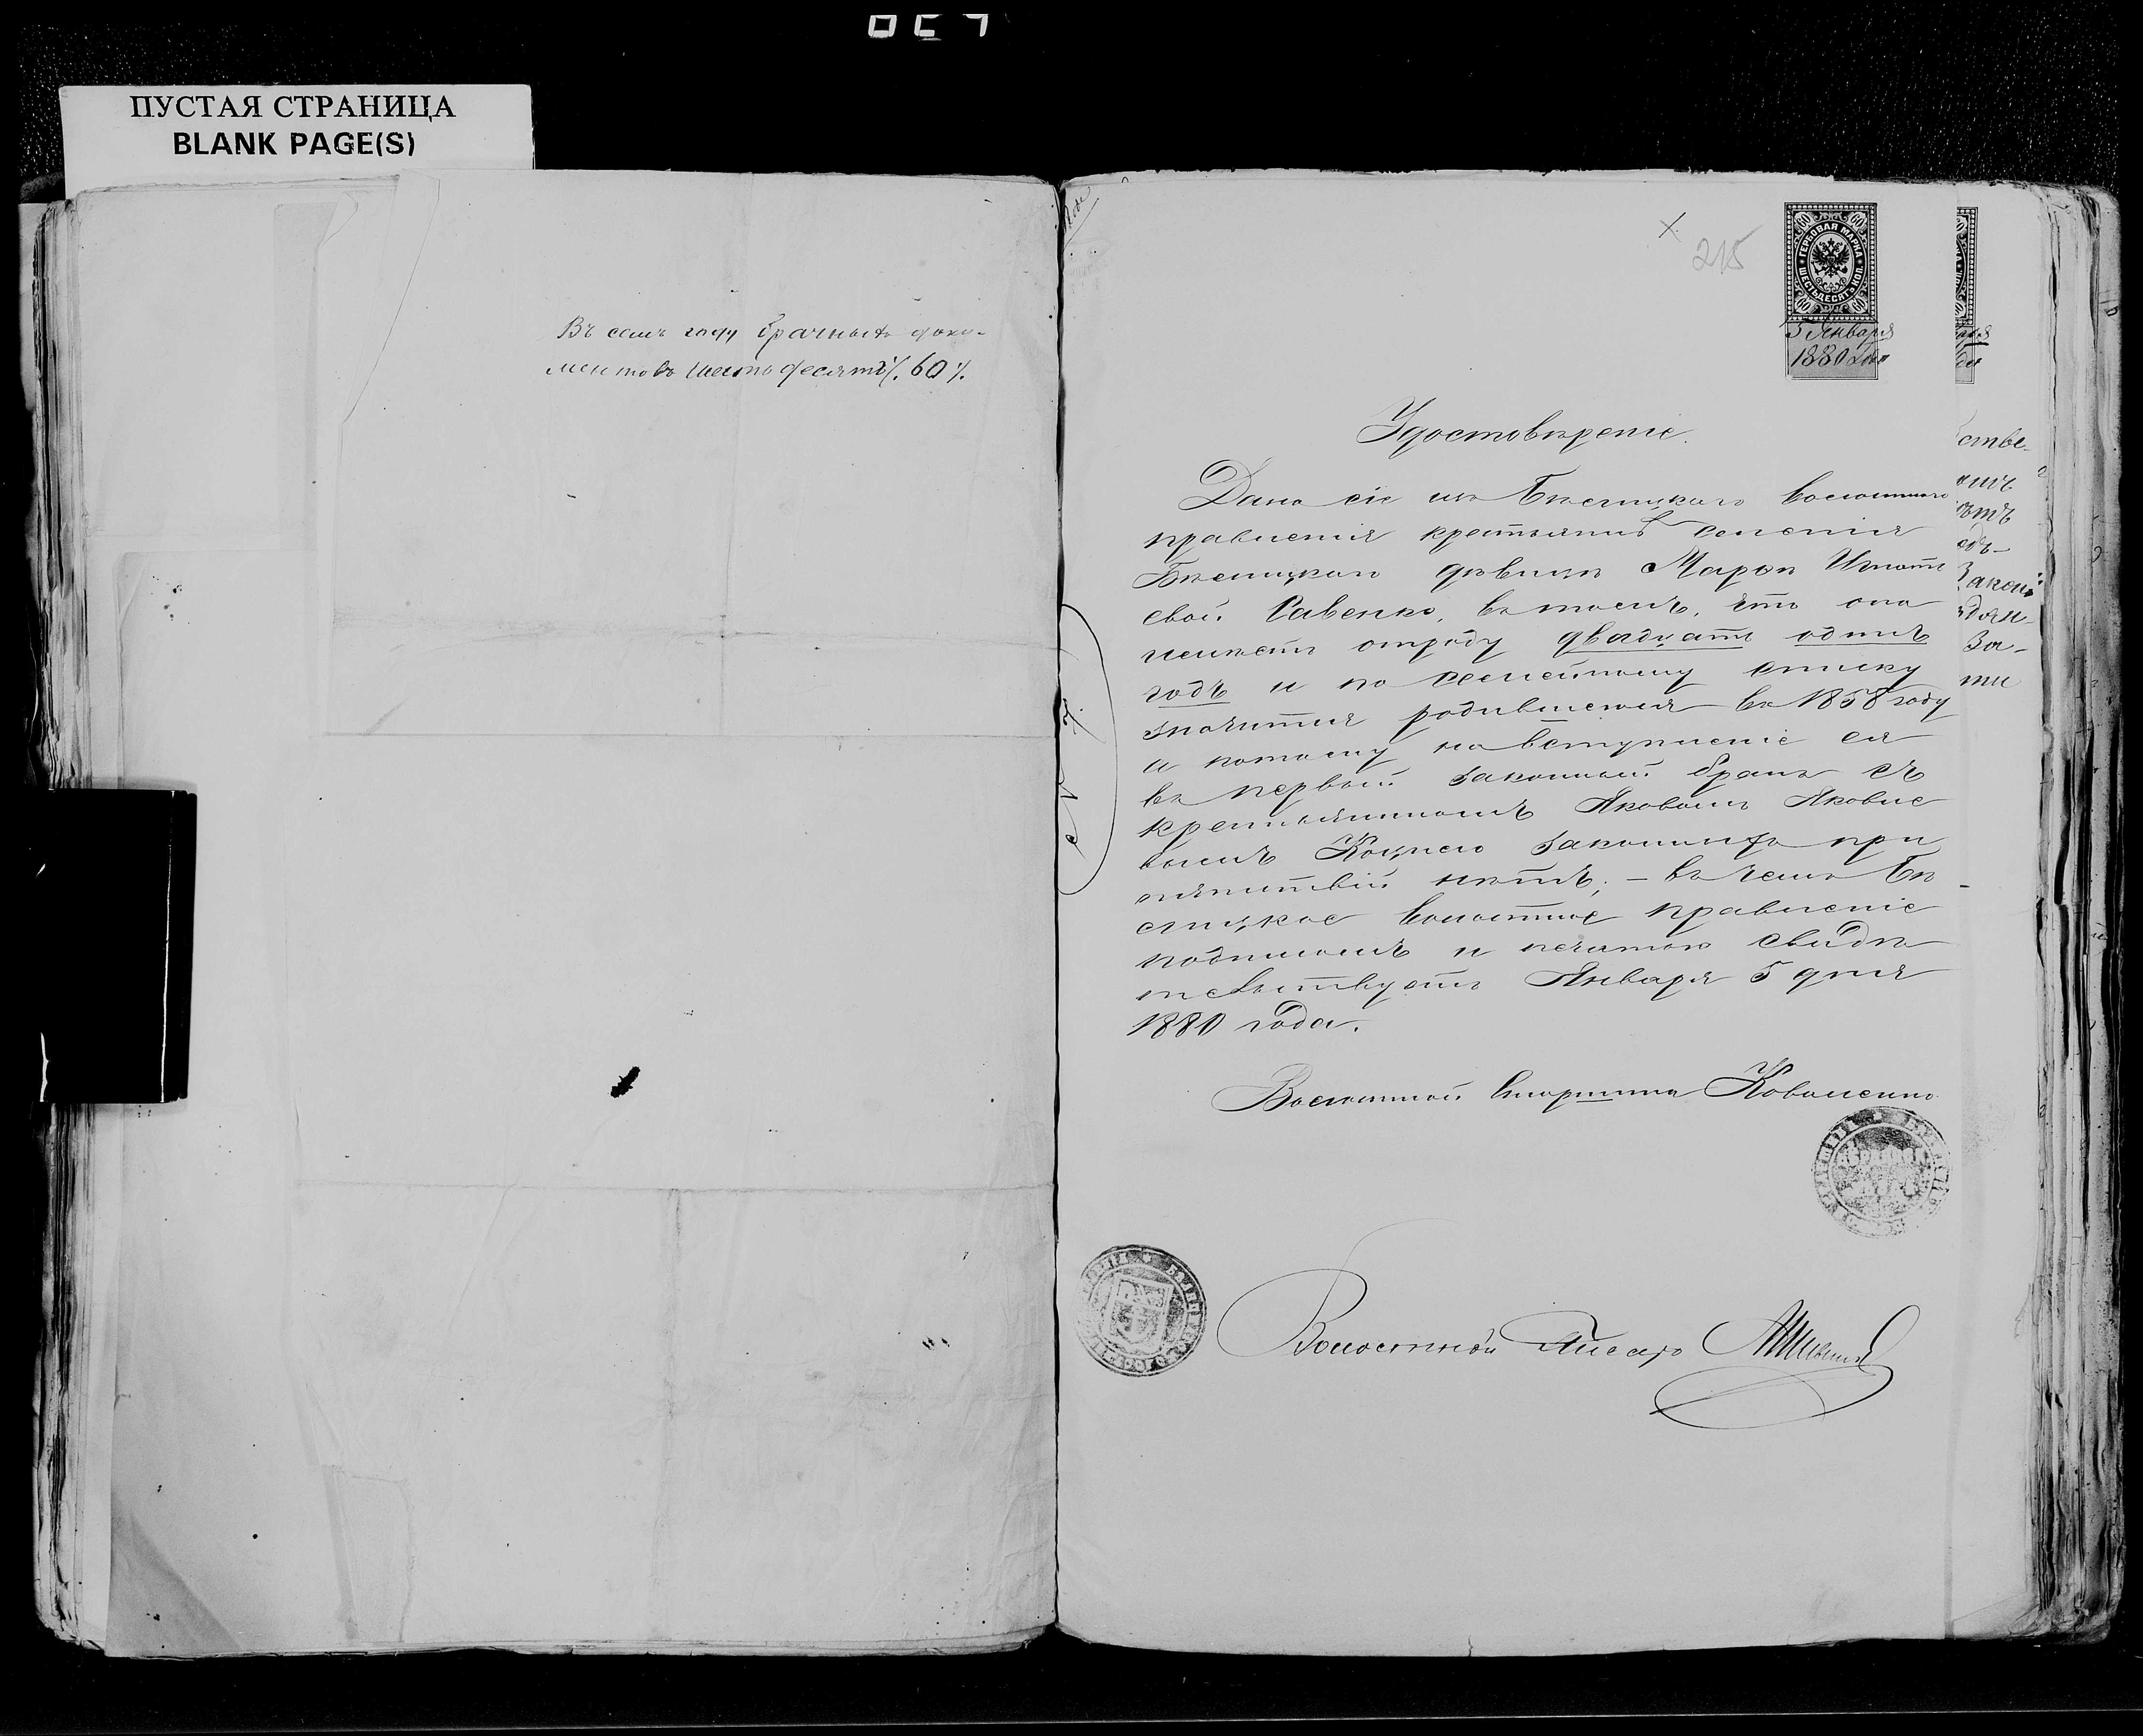 ПУСТАЯ СТРАНИЦА
BLANK PAGE(S)
Въ семъ году брачныхъ доку-
ментовъ шестьдесятъ /. 60 /.
215
60 60
ГЕРБОВАЯ МАРКА
ШЕСТЬДЕСЯТЪ КОП.
60 60
5 Января
1880 года
Удостовѣреніе.
Дано сіе изъ Бѣлицкаго волостнаго
правленія крестьянкѣ селенія
Бѣлицкаго дѣвицѣ Марѳѣ Игнать
евой Савенко, въ томъ, что она
имѣетъ отроду двадцать одинъ
годъ и по семейному списку
значится родившеюся въ 1858 году
а потому на вступленіе ея
въ первый законный бракъ съ
крестьяниномъ Яковомъ Яковле
вымъ Коцуго законныхъ пре
пятствій нѣтъ; – въ чемъ Бѣ
лицкое волостное правленіе
подписомъ и печатью свидѣ
тельствуетъ Января 5 дня
1880 года.
Волостной старшина Коваленко
Волостной Писарь
естве-
нитъ
Закон
За-
ти